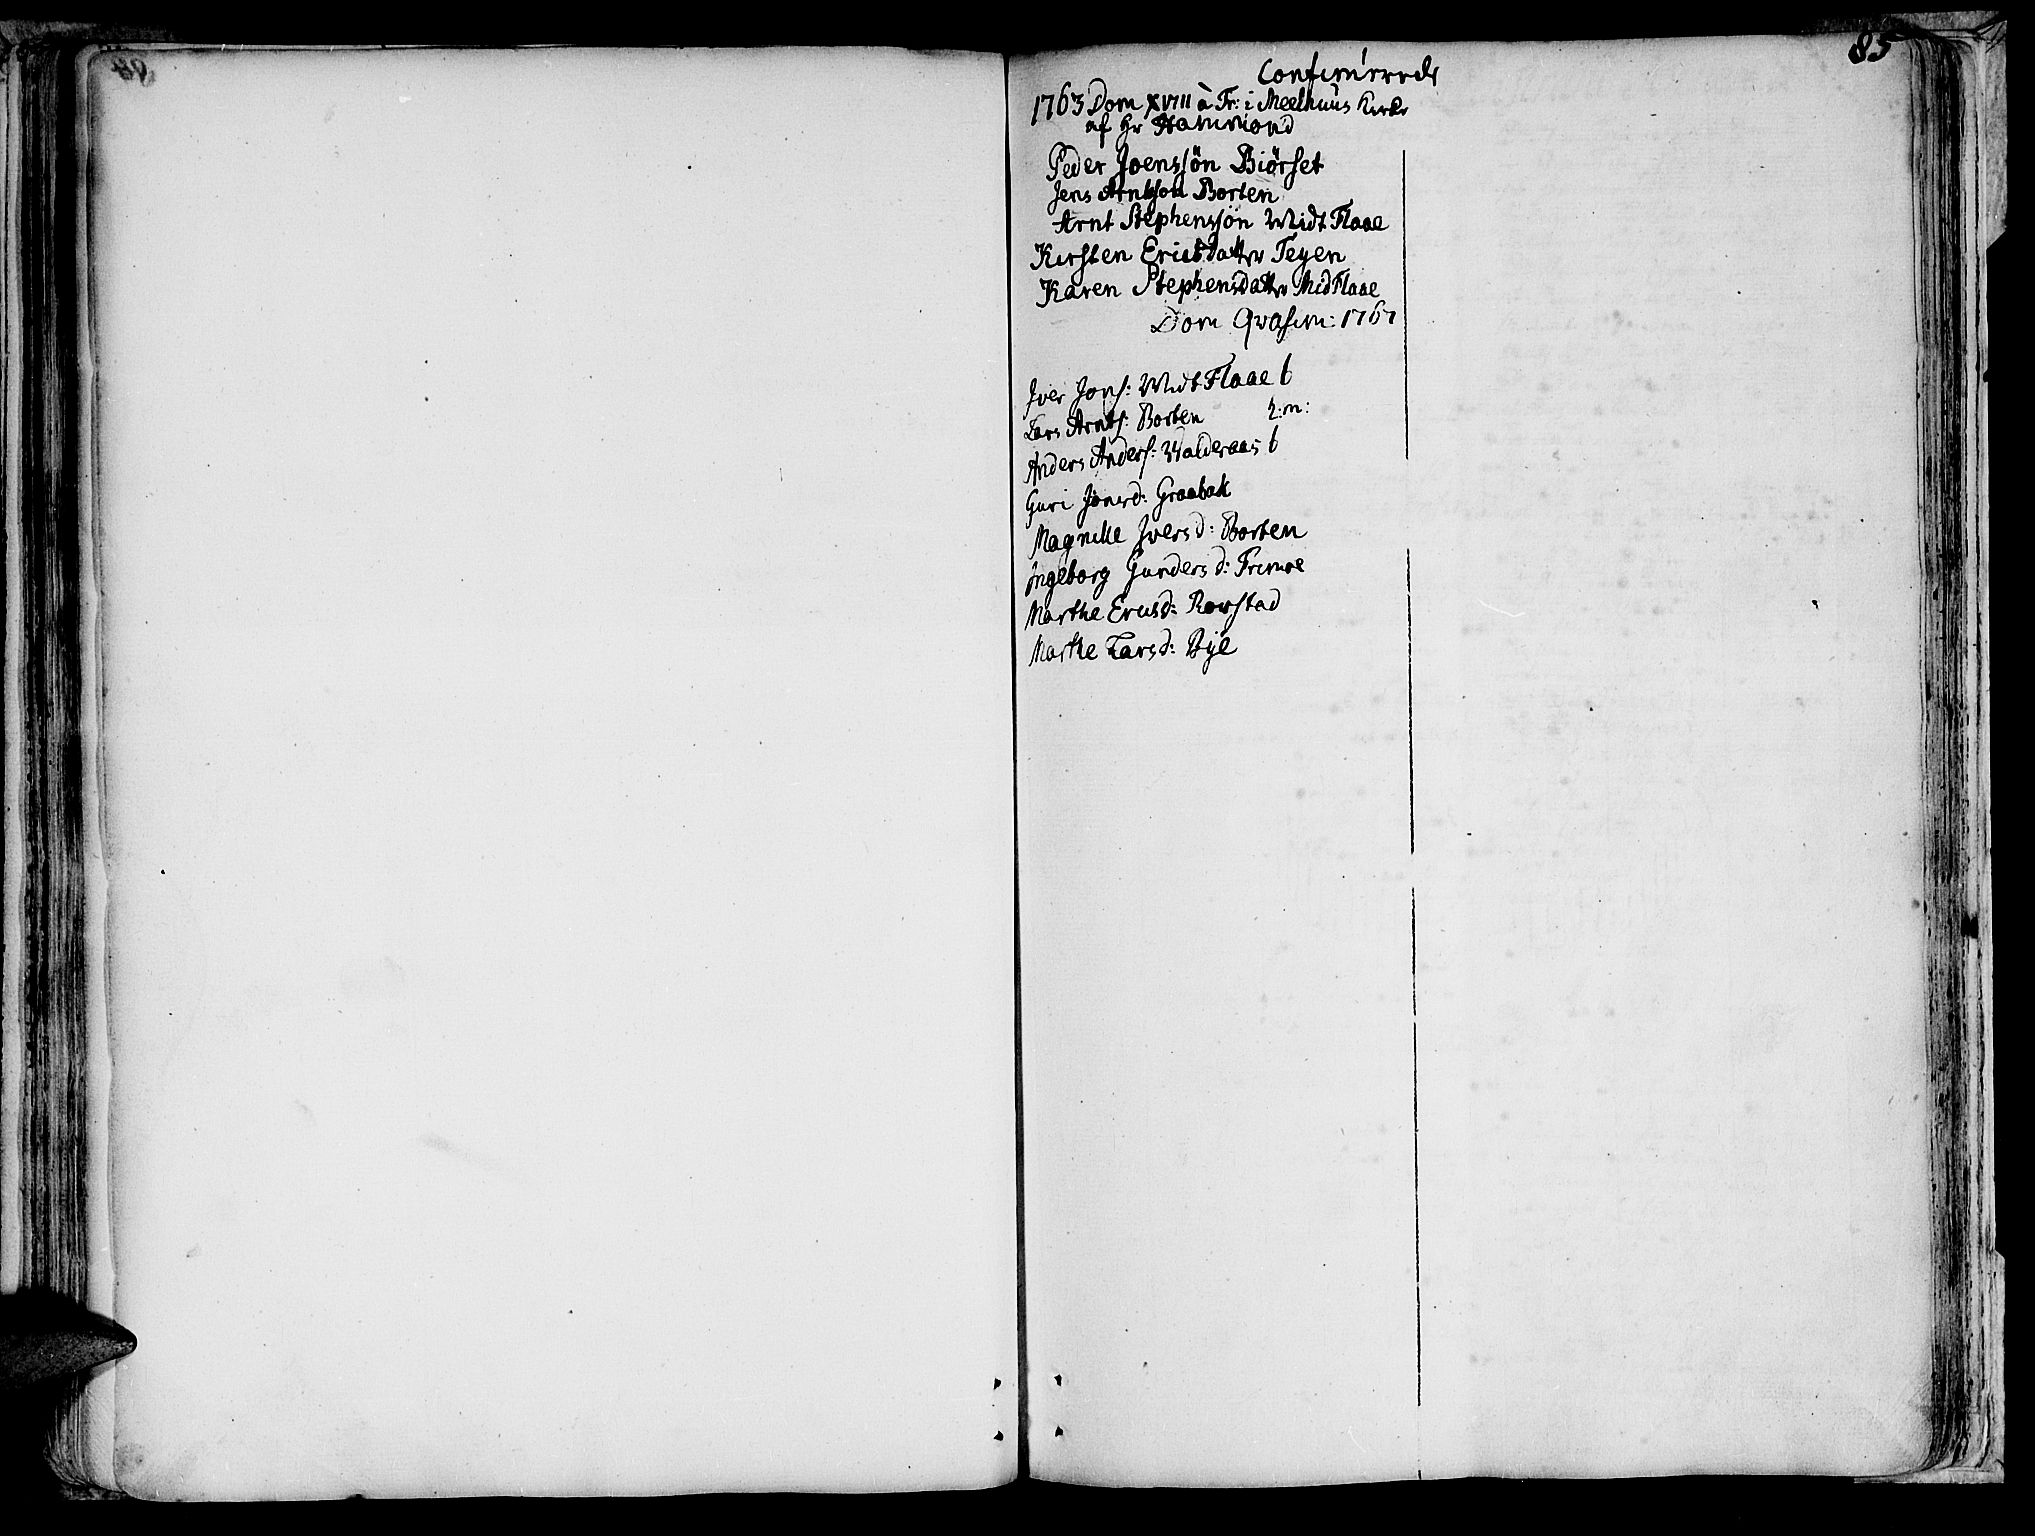 85
Confirmerede
1763 Dom XVIII à Tr: i Meelhuus Kirke
af Hr Hammond
Peder Joenssön Biörset
Jens Arntsön Borten
Arnt Stephenssön Midt Flaae
Kirsten Ericsdatter Teyen
Karen Stephensdatter Mid Flaae
Dom Qvasim: 1767
Iver Jons: Midt Flaae b
Lars Arnts: Borten h:m:
Anders Anders: Walderaas b
Guri Jonsd: Graabak
Magnille Iversd: Borten
Ingeborg Gundersd: Frimoe
Marthe Ericsd: Rorstad
Marthe Larsd: Bye